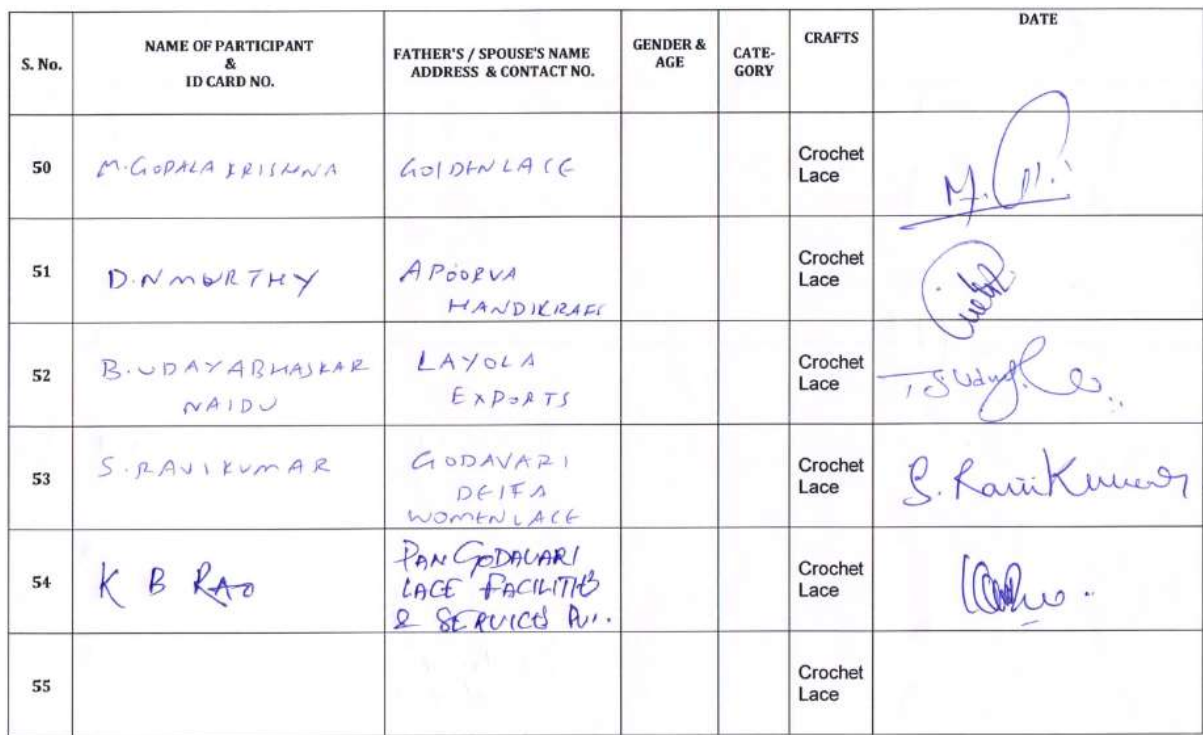 S. No. NAME OF PARTICIPANT & ID CARD NO. FATHER'S / SPOUSE'S NAME ADDRESS & CONTACT NO. GENDER & AGE CATE-GORY CRAFTS DATE
50 M.GOPALA KRISHNA GOLDENLACE Crochet Lace
51 D.N MURTHY APOORVA HANDIKRAFS Crochet Lace
52 B.UDAYABHASKAR NAIDU LAYOLA EXPORTS Crochet Lace
53 S.RAVIKUMAR GODAVARI DELTA WOMENLACE Crochet Lace S. RaviKumar
54 K B RAO PAN GODAVARI LACE FACILITIES & SERVICES Crochet Lace
55 Crochet Lace